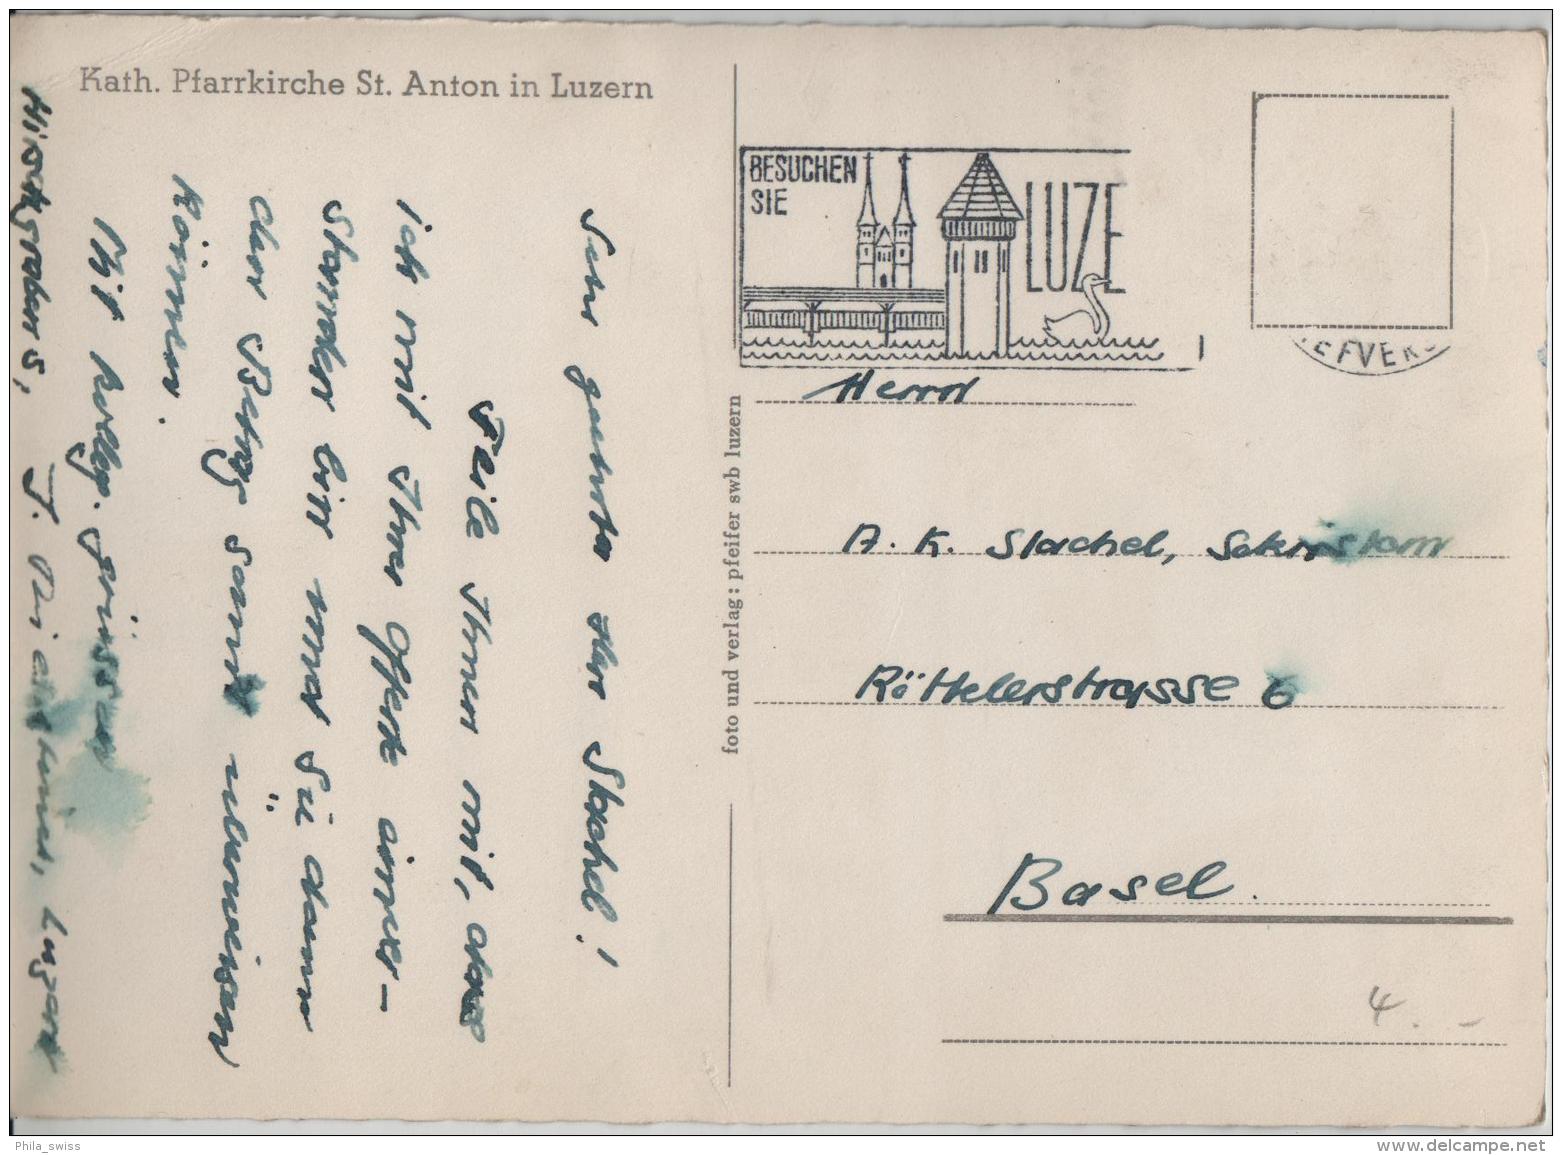 Kath. Pfarrkirche St. Anton in Luzern
Sehr geehrter Herr Stachel!
Teile Ihnen mit, dass
ich mit Ihrer Offerte einver-
standen bin und Sie dann
den Betrag samt überweisen
können.
Mit höflig. Grüssen
J.
Hirschgraben 5, Luzern
foto und verlag: pfeifer swb luzern
BESUCHEN
SIE
LUZE
EFVER
Herrn
A. K. Stachel, Sakristan
Röttelerstrasse 6
Basel.
4.-
Phila_swiss
www.delcampe.net